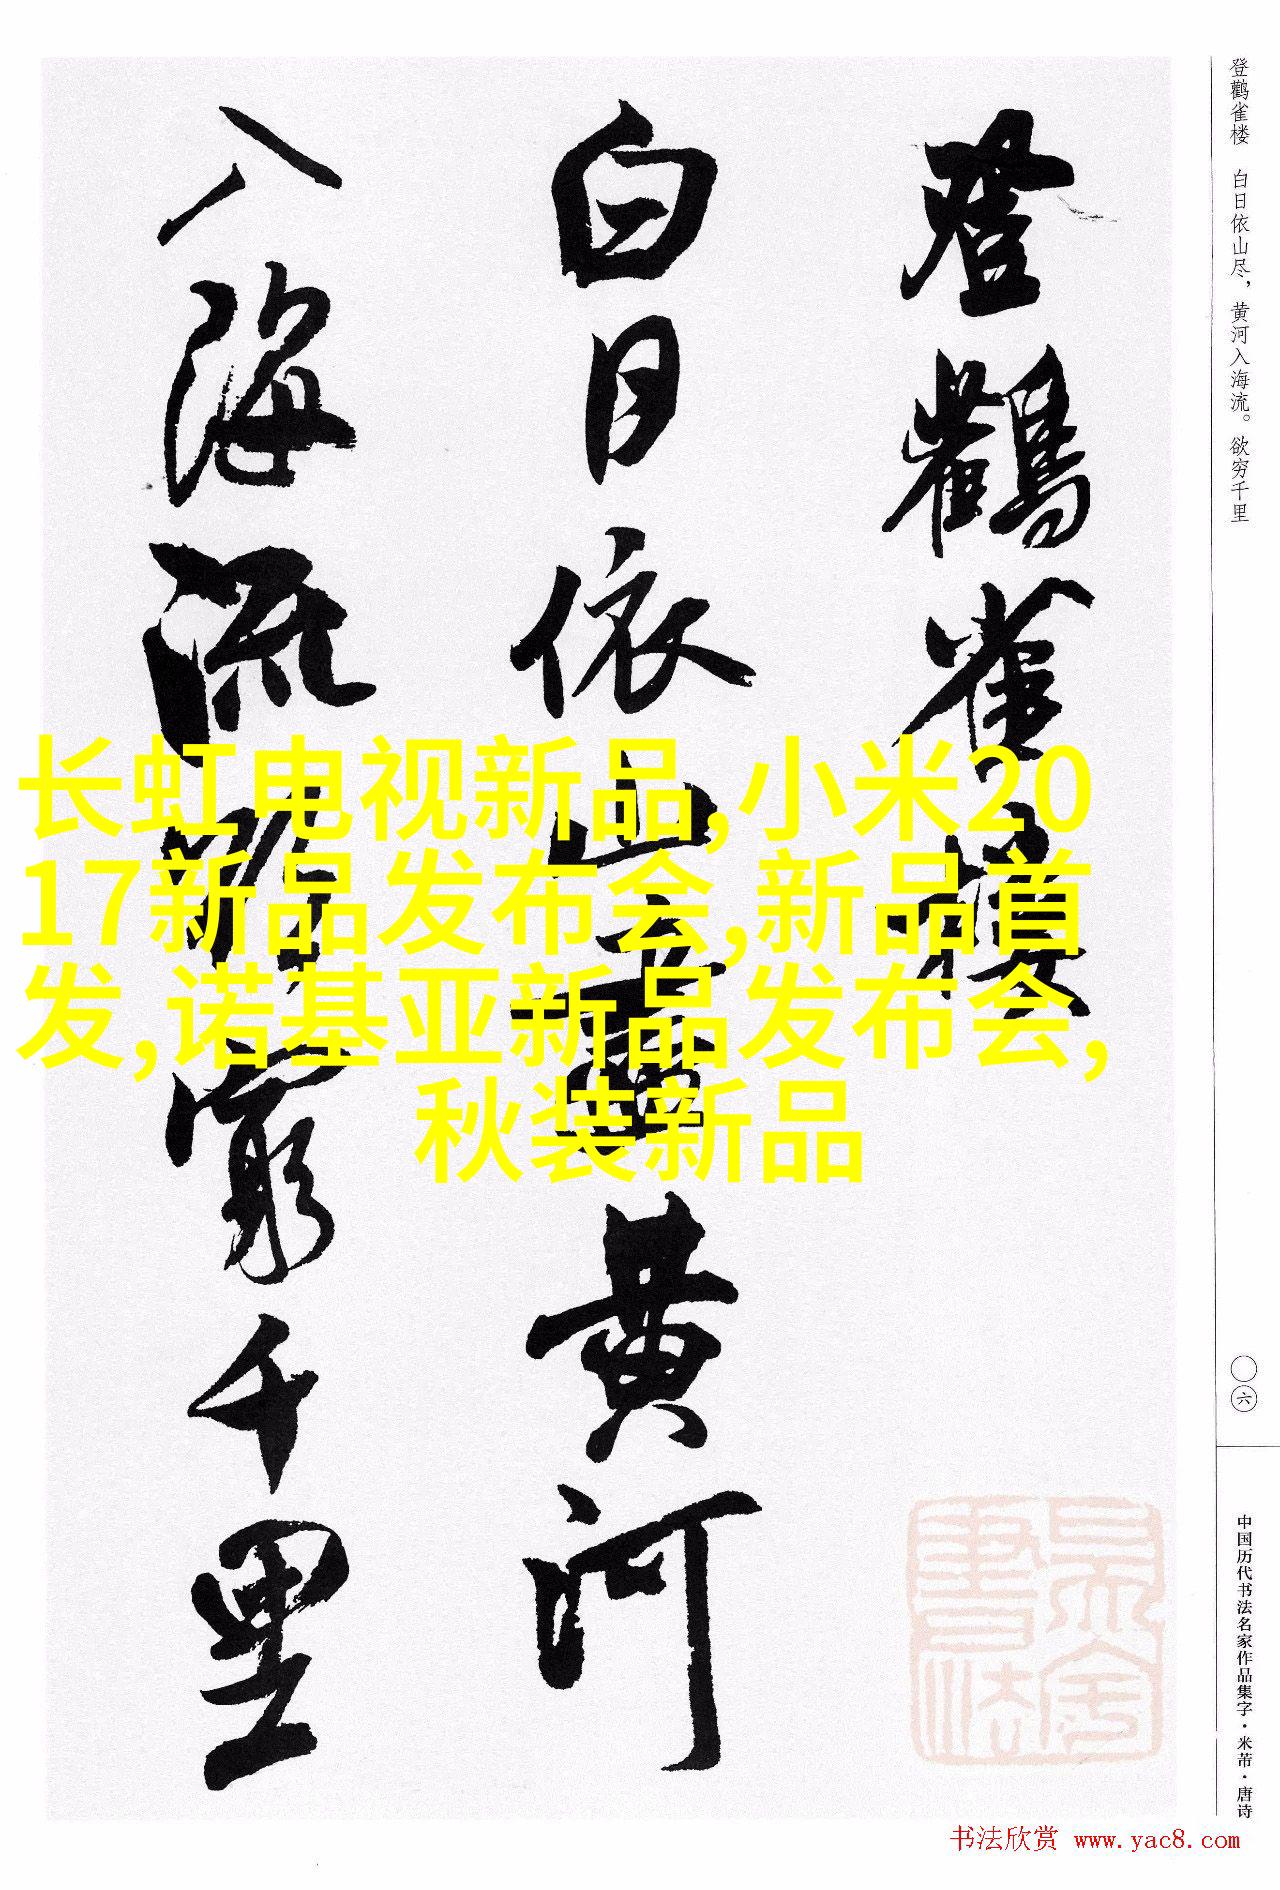 登鹳雀楼 白日依山尽，黄河入海流。欲穷千里
〇六
中国历代书法名家作品集字·米芾·唐诗
登鸛雀樓
白日依山盡黄河
入海流欲窮千里
长虹电视新品,小米20
17新品发布会,新品首
发,诺基亚新品发布会,
秋装新品
书法欣赏 www.yac8.com